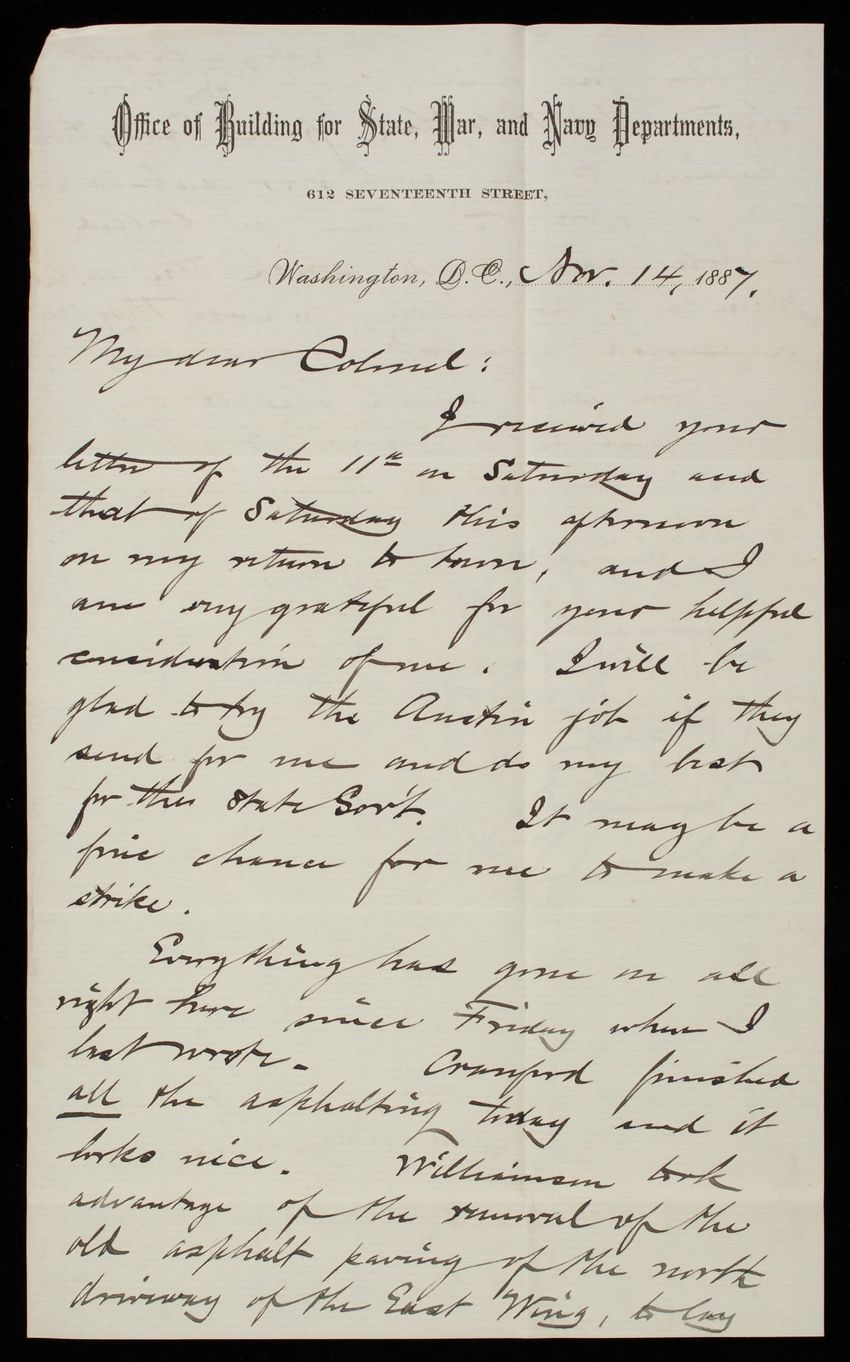 Office of Building for State, War, and Navy Departments,
612 SEVENTEENTH STREET,
Washington, D.C., Nov. 14, 1887.
My dear Colonel:
I received your
letter of the 11th on Saturday and
that of Saturday this afternoon
on my return to town, and I
am very grateful for your helpful
consideration of me. I will be
glad to try the Austin job if they
send for me and do my best
for the State Gov't. It may be a
fine chance for me to make a
strike.
Everything has gone on all
right here since Friday when I
last wrote. Cranford finished
all the asphalting today and it
looks nice. Williamson took
advantage of the removal of the
old asphalt paving of the north
driveway of the East Wing, to lay